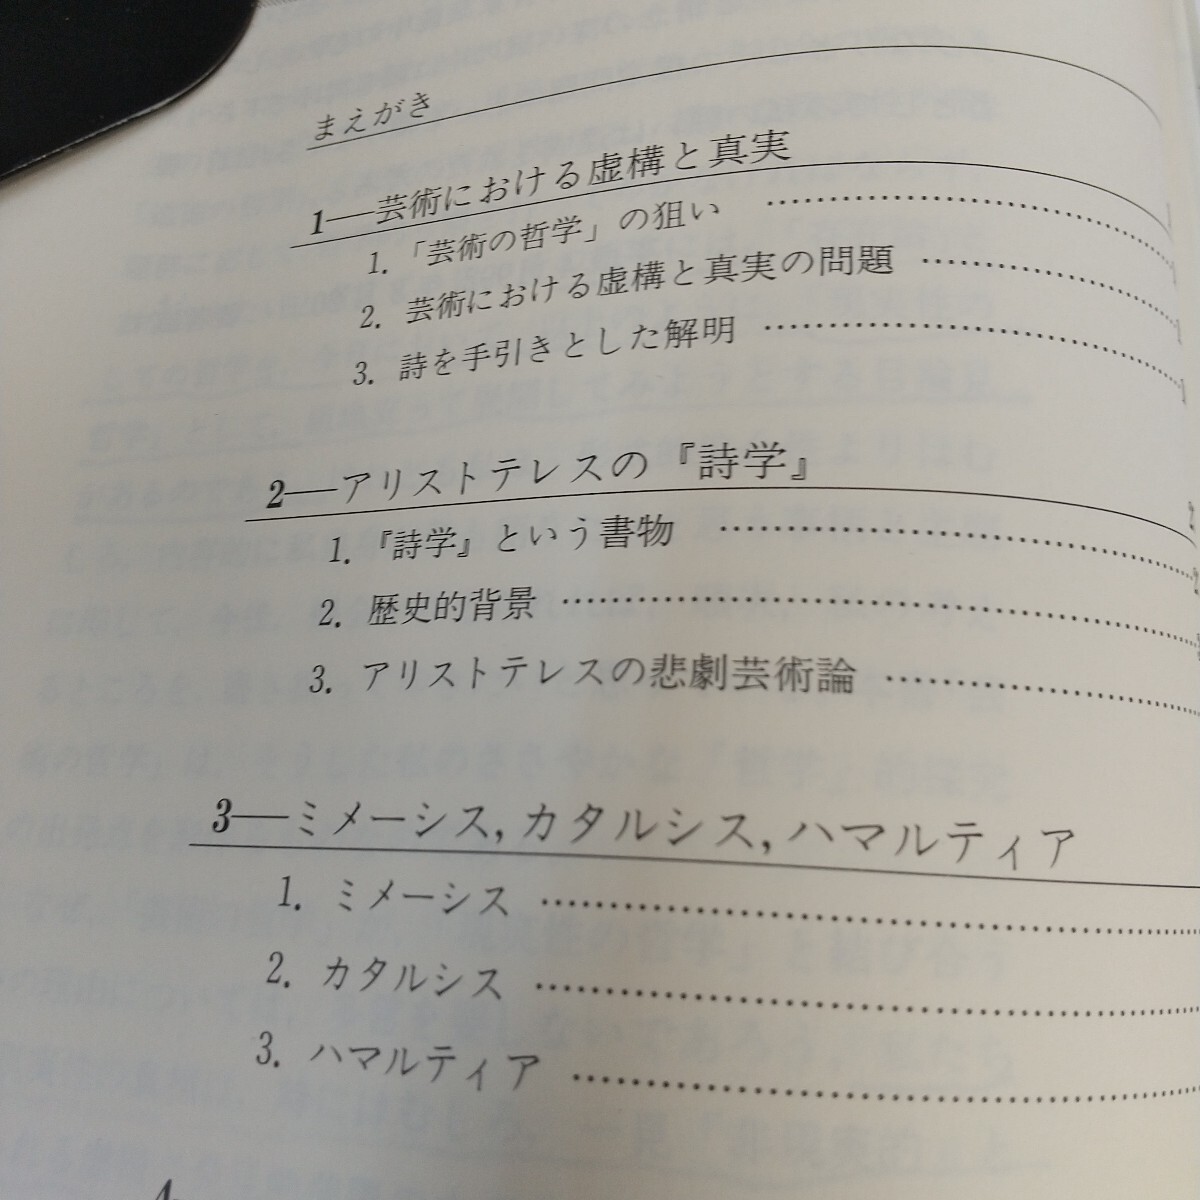 まえがき
1—芸術における虚構と真実
1. 「芸術の哲学」の狙い
2. 芸術における虚構と真実の問題
3. 詩を手引きとした解明
2—アリストテレスの『詩学』
1. 『詩学』という書物
2. 歴史的背景
3. アリストテレスの悲劇芸術論
3—ミメーシス, カタルシス, ハマルティア
1. ミメーシス
2. カタルシス
3. ハマルティア